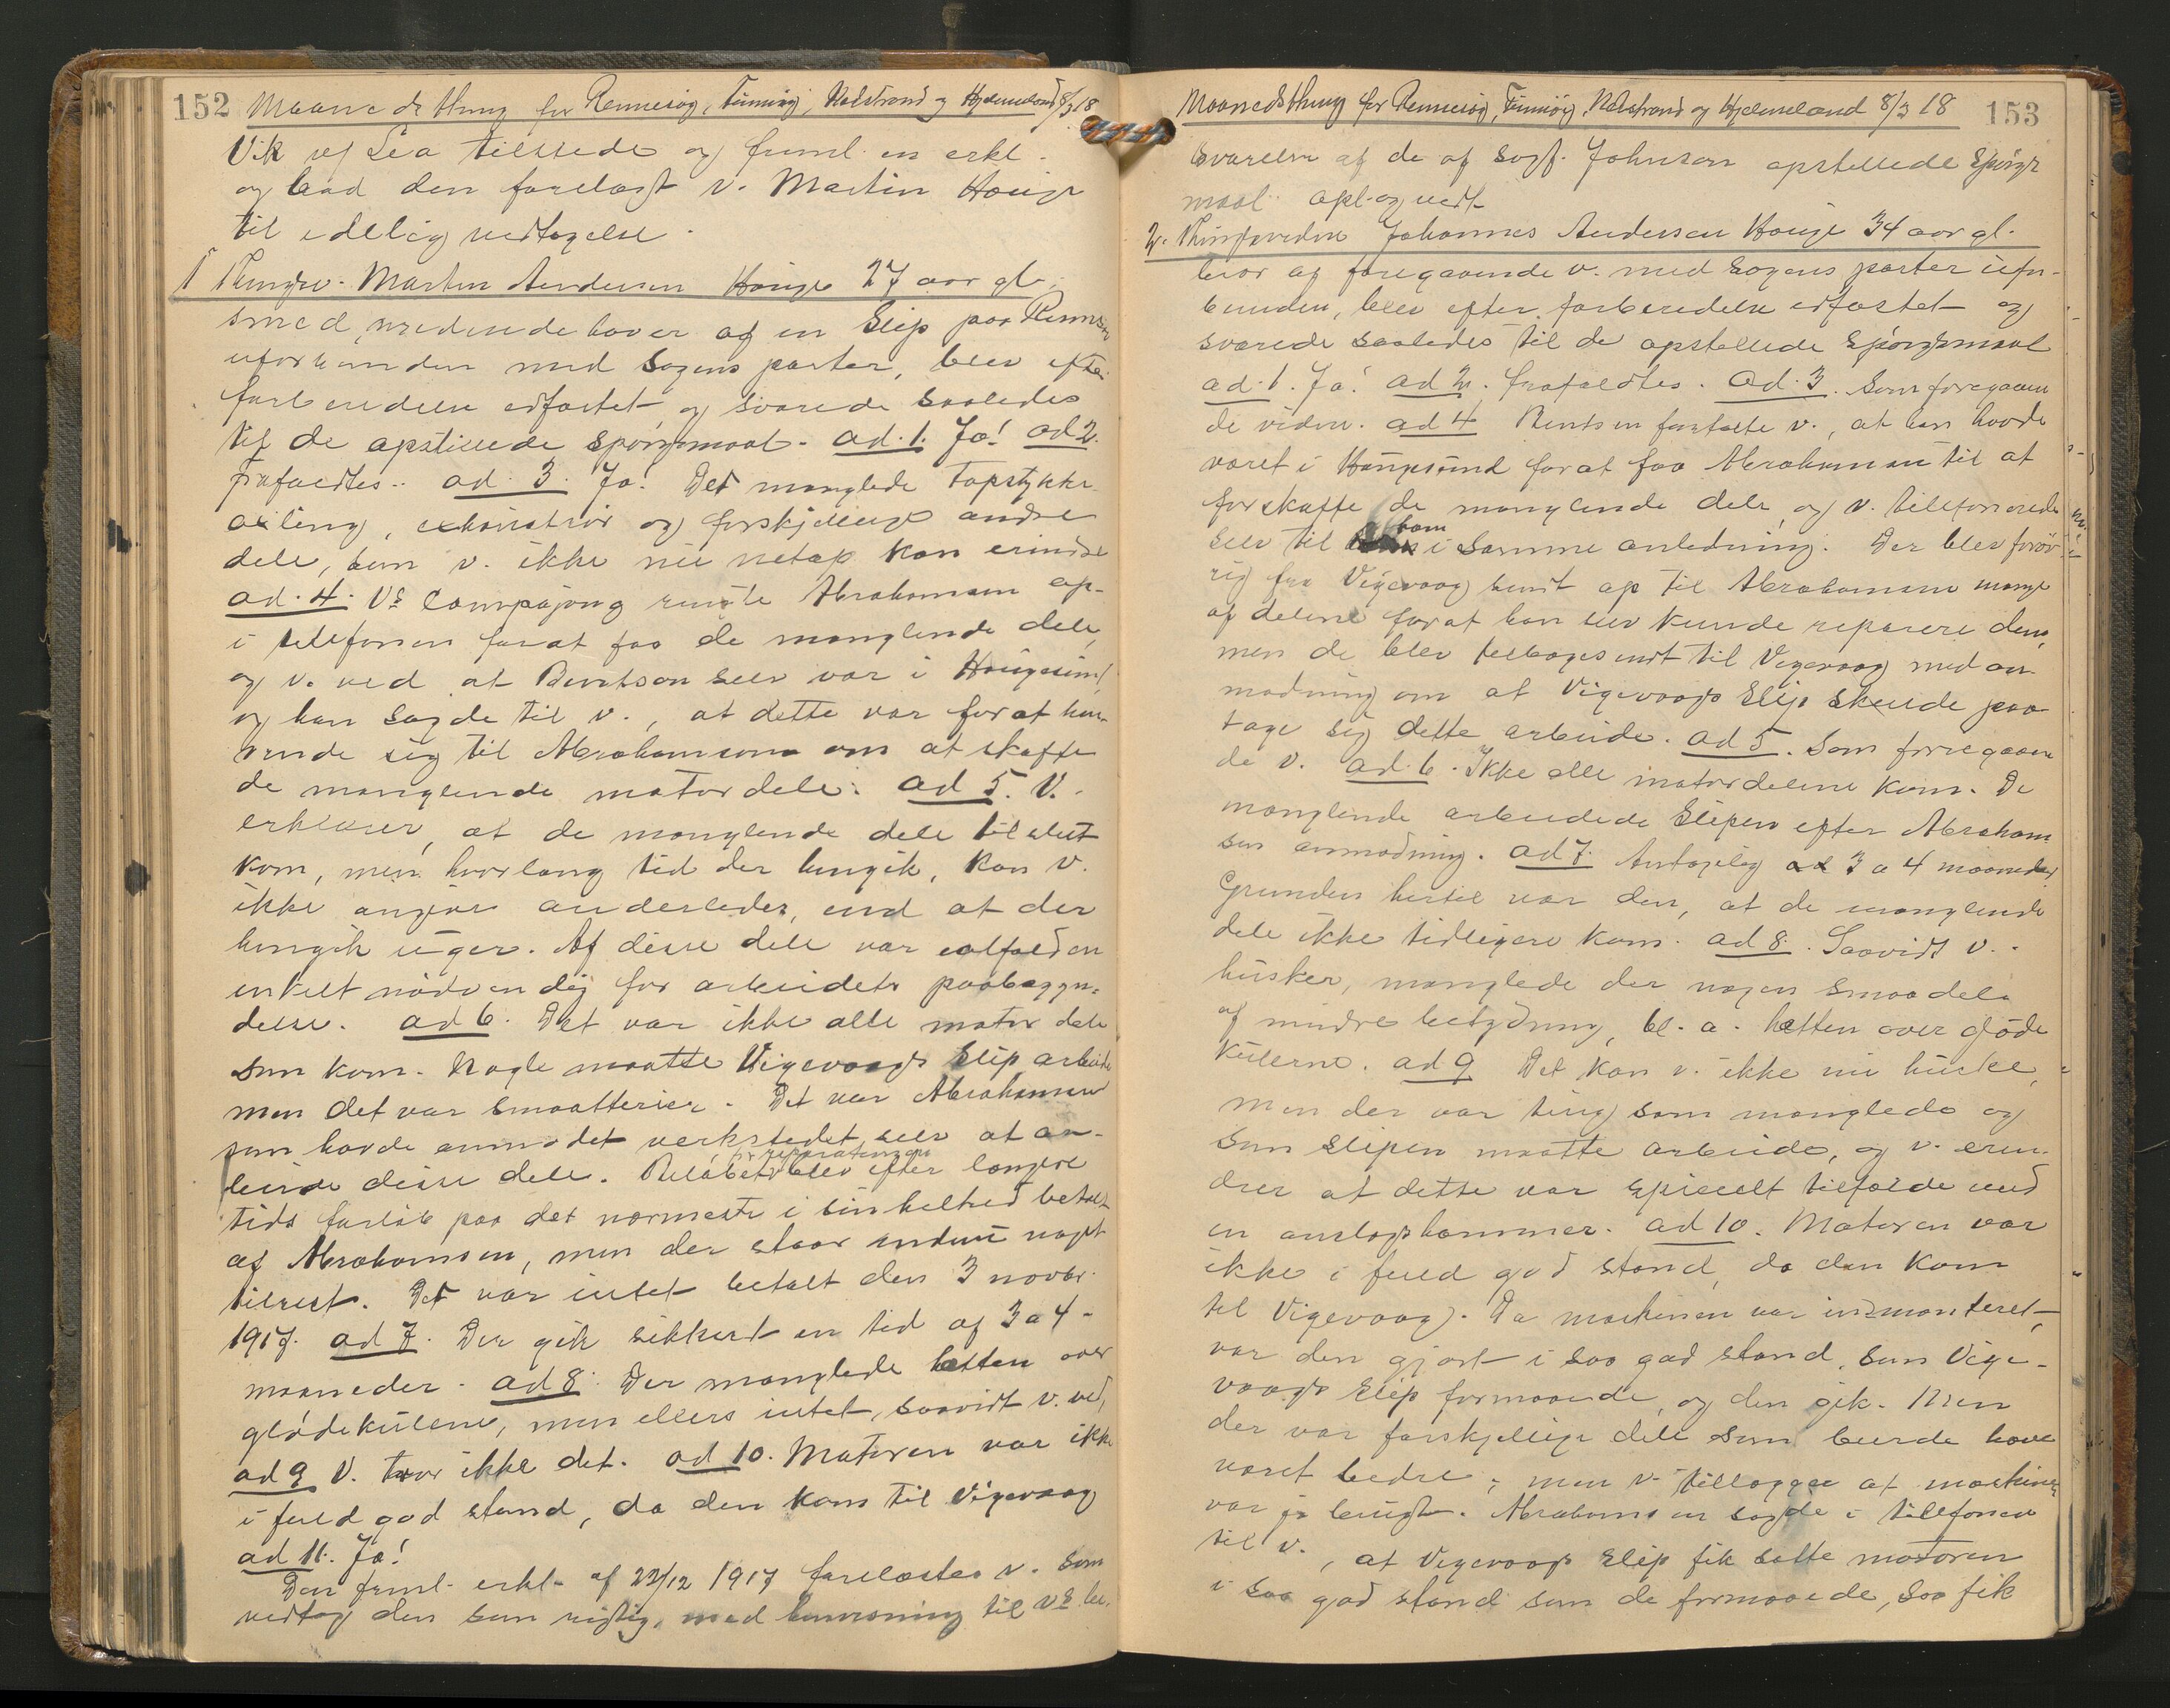 152 Maanedsthing for Rennesøy, Finnøy, Nedstrand og Hjelmeland 8/3 18
Vik og Lea tilstede og freml. en erkl.
og bad den forelæst v. Martin Hauge
til edelig vedtagelse.
1 Thingsv. Martin Andersen Hauge 27 aar gl.
smed, medindehaver af en Slip paa Rennesøy
uforbunden med sagens parter, blev efter
forberedelse edfæstet og svarede saaledes
til de opstillede spørgsmaal. ad. 1. Ja! ad 2.
frafaldtes. ad. 3. Ja! Det manglede topstykke
axling, exhaustrør og forskjellige andre
dele, som v. ikke nu netop kan erindre
ad. 4. Vs. Compagnong ringte Abrahamsen op
i telefonen for at faa de manglende dele,
og v. ved at Berntsen selv var i Haugesund,
og han sagde til v., at dette var for at hen-
vende sig til Abrahamsen om at skaffe
de manglende motordele. ad 5. V.
erklærer, at de manglende dele tilslut
kom, men hvorlang tid der hengik, kan v.
ikke angive anderledes, end at der
hengik uger. Af disse dele var ialfald en
enkelt nødvendig for arbeidets paabegyn-
delse. ad 6. Det var ikke alle motordele
som kom. Nogle maatte Vigevaags Slip arbeide
men det var smaatterier. Det var Abrahamsen
som havde anmodet verkstedet selv at ar-
for reparationen
beide disse dele. Beløbet blev efter længere
tids forløb paa det nærmeste i sin helhed betalt
af Abrahamsen, men der staar endnu noget
tilrest. Det var intet betalt den 3 novbr.
1917. ad 7. Der gik sikkert en tid af 3 a 4
maaneder. ad 8. Der manglede hætten over
glødekulene, men ellers intet, saavidt v. ved,
ad 9 V. tror ikke det. ad 10. Motoren var ikke
i fuld god stand, da den kom til Vigevaag
ad 11. Ja!
Den freml. erkl. af 22/12 1917 forelæstes v. som
vedtog den som rigtig, med henvisning til vs be-
Maanedsthing for Rennesøy, Finnøy, Nedstrand og Hjelmeland 8/3 18 153
svarelse af de af sagf. Johnsen opstillede Spørgs
maal. opl. og vedt.
2. Thingsvidne Johannes Andersen Hauge 34 aar gl.
bror af foregaaende v. med sagens parter ufor-
bunden, blev efter forberedelse edfæstet og
svarede saaledes til de opstillede Spørgsmaal
ad. 1. Ja! ad 2. frafaldtes. ad. 3. Som foregaaen
de vidne. ad 4 Berntsen fortalte v., at han havde
været i Haugesund for at faa Abrahamsen til at
forskaffe de manglende dele, og v. telefonerede
ham
selv til i samme anledning. Der blev forøv-
rig fra Vigevaag sendt op til Abrahamsen mange
af delene for at han selv kunde reparere dem,
men de blev tilbagesendt til Vigevaag med an-
modning om at Vigevaags Slip skulde paa-
tage sig dette arbeide. ad 5. Som foregaaen
de v. ad. 6. Ikke alle motordelene kom. De
manglende arbeidede Slipen efter Abraham
sen anmodning. ad 7. Antagelig 3 a 4 maaneder
Grunden hertil var den, at de manglende
dele ikke tidligere kom. ad 8. Saavidt v.
husker, manglede der nogen smaadele
af mindre betydning, bl. a. hætten over gløde
kulerne. ad 9 Det kan v. ikke nu huske,
men der var ting som manglede og
som slipen maatte arbeide, og v. erin-
drer at dette var specielt tilfælde med
en anslagshammer. ad 10. Motoren var
ikke i fuld god stand, da den kom
til Vigevaag. Da maskinen var indmonteret,
var den gjort i saa god stand, som Vige-
vaags Slip formaaede, og den gik. Men
der var forskjellige dele som burde have
været bedre; men v. tillægger at maskinen
var jo brugt. Abrahamsen sagde i telefonen
til v., at Vigevaags Slip fik sætte motoren
i saa god stand som de formaaede, saa fik